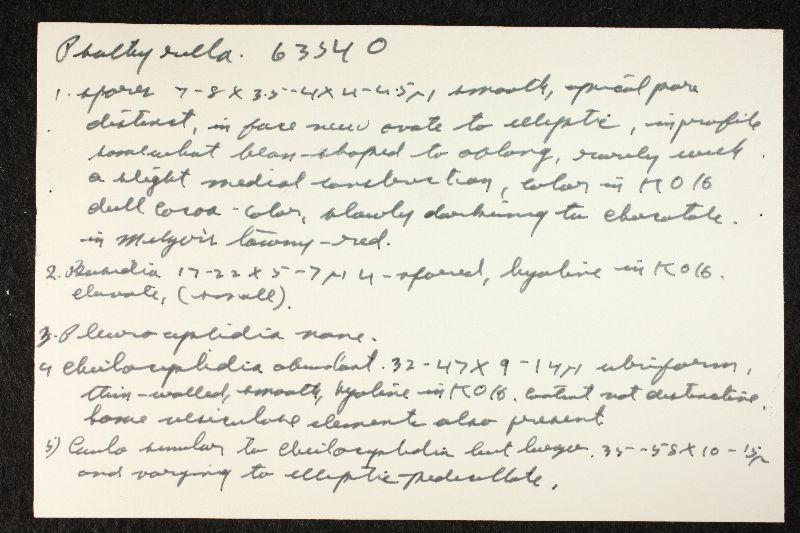 Psathyrella. 63340
1. spores 7-8 X 3.5-4 X 4-4.5µ, smooth, apical pore
distinct, in face view ovate to elliptic, in profile
somewhat bean-shaped to oblong, rarely with
a slight medial constriction, color in KOH
dull cocoa-color, slowly darkening to chocolate.
in Melzer's tawny-red.
2. Basidia 17-22 X 5-7µ 4-spored, hyaline in KOH.
clavate, (small).
3. Pleurocystidia none.
4 Cheilocystidia abundant. 32-47 X 9-14µ utriform,
thin-walled, smooth, hyaline in KOH. content not distinctive.
Some vesiculose elements also present
5) Caulo similar to Cheilocystidia but larger. 35-58 X 10-15µ
and varying to elliptic-pedicellate.